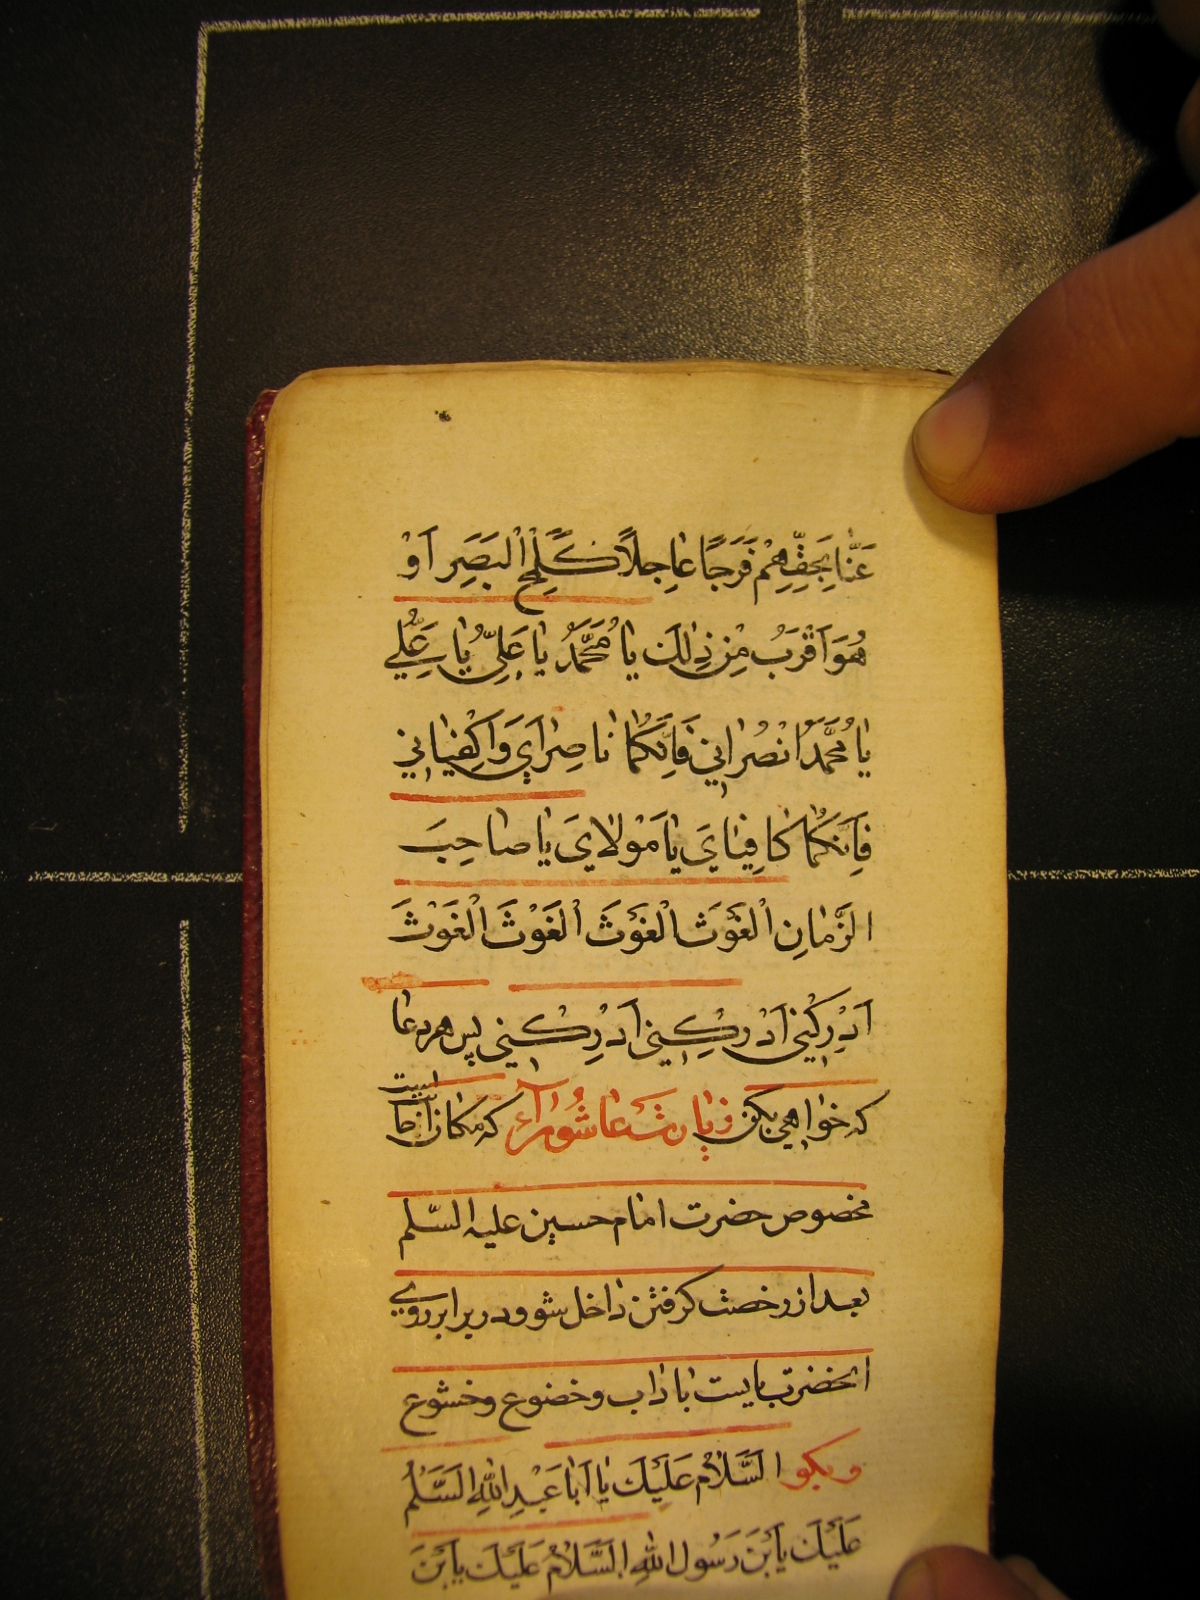 عَنَّا بِحَقِّهِمْ فَرَجًا عَاجِلًا كَلَمْحِ الْبَصَرِ اَوْ
هُوَ اَقْرَبُ مِنْ ذٰلِكَ يَا مُحَمَّدُ يَا عَلِيُّ يَا عَلِيُّ
يَا مُحَمَّدُ انْصُرَانِي فَاِنَّكُمَا نَاصِرَايَ وَاكْفِيَانِي
فَاِنَّكُمَا كَافِيَايَ يَا مَوْلَايَ يَا صَاحِبَ
الزَّمَانِ الْغَوْثَ الْغَوْثَ الْغَوْثَ الْغَوْثَ
اَدْرِكْنِي اَدْرِكْنِي اَدْرِكْنِي پس هر دعا
که خواهی بکن زیارت عاشوراء که مکان آنجا نیست
مخصوص حضرت امام حسین علیه السّلم
بعد از رخصت گرفتن داخل شو و در برابر روی
انحضرت بایست باداب و خضوع و خشوع
و بگو السَّلَامُ عَلَيْكَ يَا اَبَا عَبْدِ اللهِ السَّلَمُ
عَلَيْكَ يَابْنَ رَسُولِ اللهِ السَّلَامُ عَلَيْكَ يَابْنَ